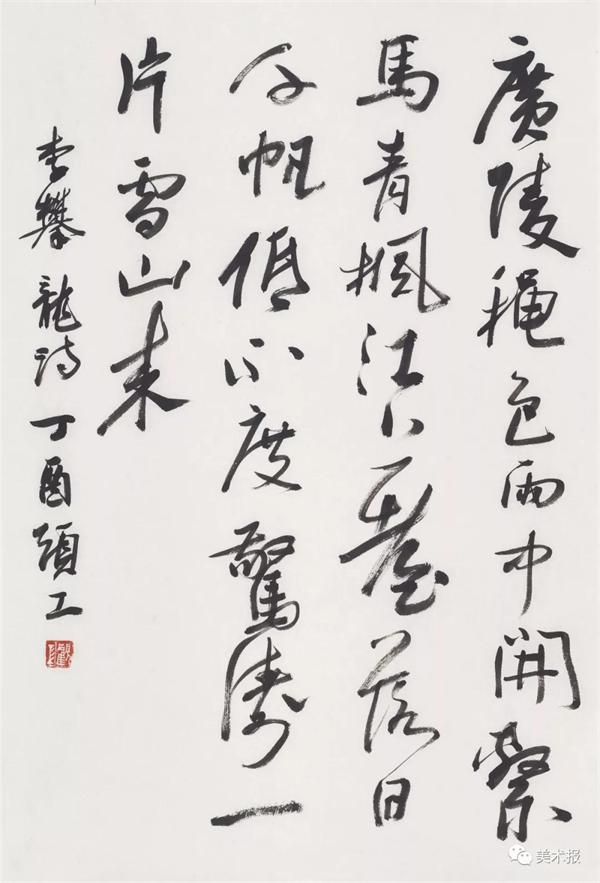 廣陵穐色雨中開繫
馬青楓江上臺落日
千帆低不度驚濤一
片雪山来
李攀龍詩丁酉工
美术报